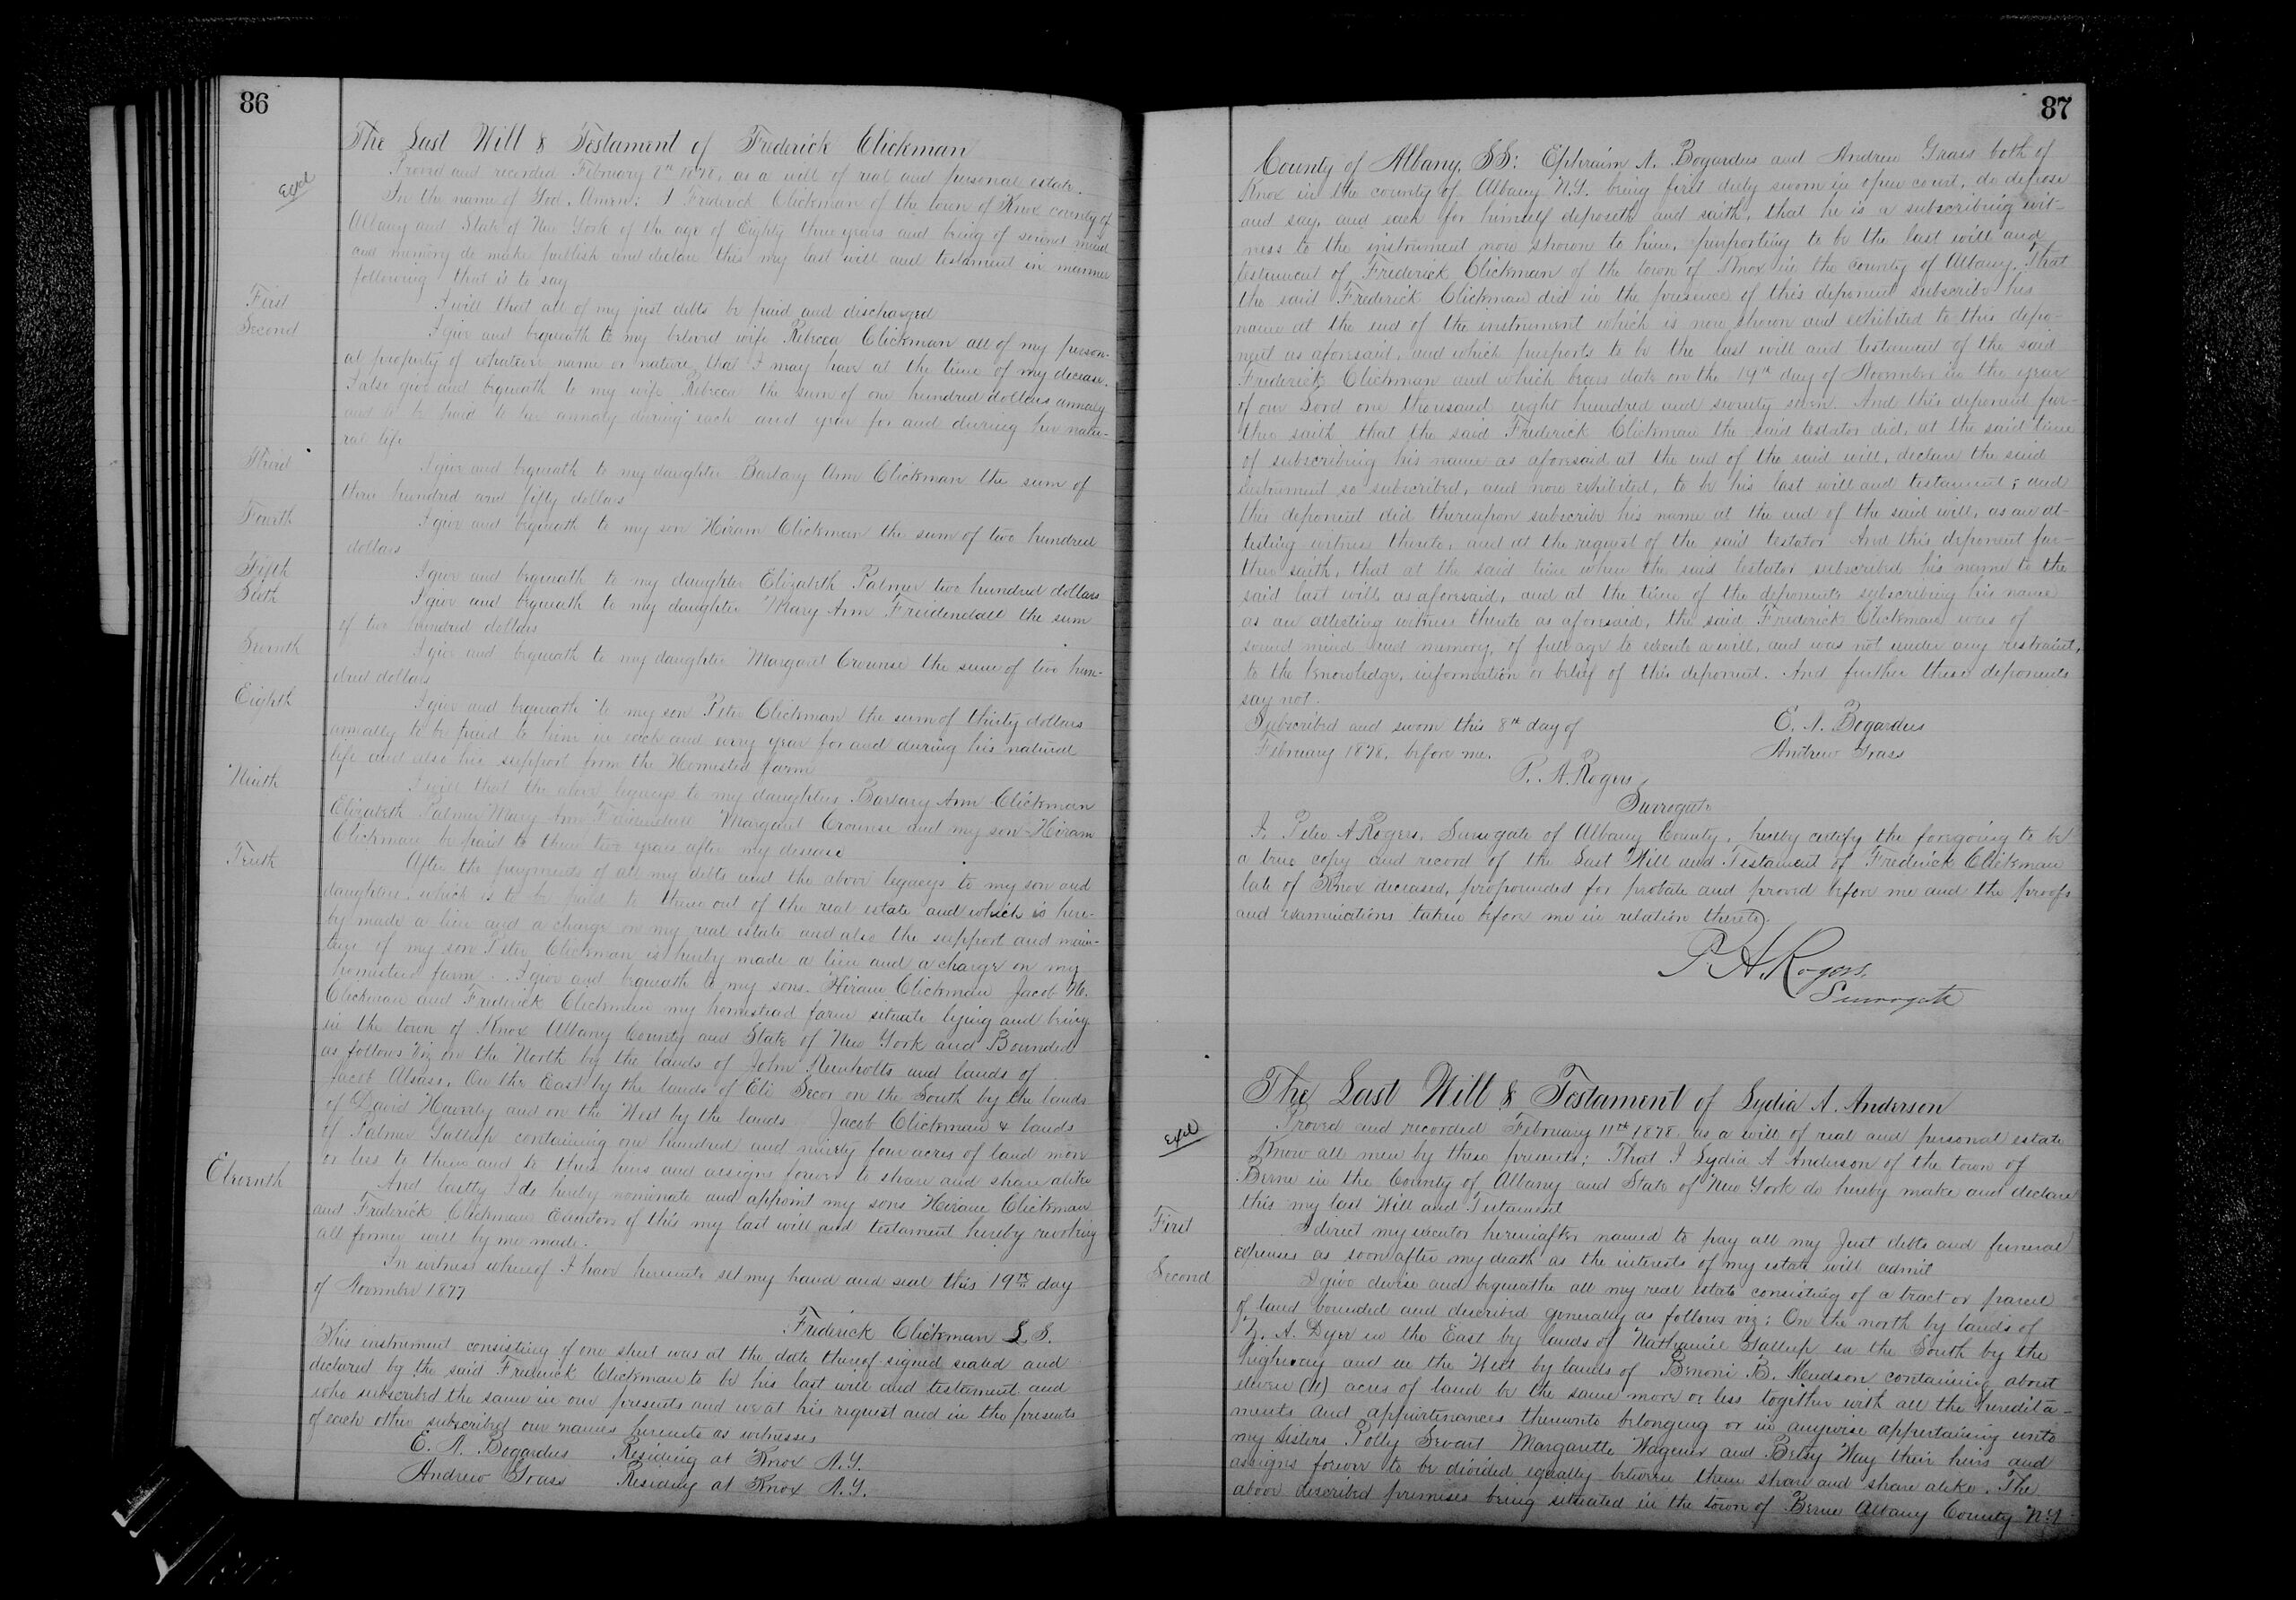 86
The Last Will & Testament of Frederick Clickman
Proved and recorded February 8th 1878, as a will of real and personal estate.
Exd
In the name of God, Amen: I Frederick Clickman of the town of Knox county of
Albany and State of New York of the age of Eighty three years and being of sound mind
and memory do make publish and declare this my last will and testament in manner
following that is to say
First I will that all of my just debts be paid and discharged
Second I give and bequeath to my beloved wife Rebecca Clickman all of my person-
al property of whatever name or nature, that I may have at the time of my decease.
I also give and bequeath to my wife Rebecca the sum of one hundred dollars annaly
and to be paid to her annaly during each and year for and during her natu-
ral life
Third I give and bequeath to my daughter Barbary Ann Clickman the sum of
three hundred and fifty dollars
Fourth I give and bequeath to my son Hiram Clickman the sum of two hundred
dollars
Fifth I give and bequeath to my daughter Elizabeth Palmer two hundred dollars
Sixth I give and bequeath to my daughter Mary Ann Freidendall the sum
of two hundred dollars
Seventh I give and bequeath to my daughter Margaret Crounse the sum of two hun-
dred dollars
Eighth I give and bequeath to my son Peter Clickman the sum of thirty dollars
annually to be paid to him in each and every year for and during his natural
life and also his support from the Homested farm
Ninth I will that the above legacys to my daughters Barbary Ann Clickman
Elizabeth Palmer Mary Ann Freidendall Margaret Crounse and my son Hiram
Clickman be paid to them two years after my decease
Tenth After the payments of all my debts and the above legacys to my son and
daughters, which is to be paid to them out of the real estate and which is here-
by made a lien and a charge on my real estate and also the support and main-
tence of my son Peter Clickman is hereby made a lien and a charge on my
homestead farm. I give and bequeath to my sons. Hiram Clickman Jacob H.
Clickman and Frederick Clickman my homestead farm situate lying and being
in the town of Knox Albany County and State of New York and Bounded
as follows viz on the North by the lands of John and lands of
Jacob On the East by the lands of Eli Secor on the South by the lands
of David Haverly and on the West by the lands Jacob Clickman & lands
of Palmer Gallup containing one hundred and ninety four acres of land more
or less to them and to their heirs and assigns forever to share and share alike
Eleventh And lastly I do hereby nominate and appoint my sons Hiram Clickman
and Frederick Clickman Executors of this my last will and testament hereby revoking
all former will by me made.
In witness whereof I have hereunto set my hand and seal this 19th day
of November 1877
Frederick Clickman L. S.
This instrument consisting of one sheet was at the date thereof signed sealed and
declared by the said Frederick Clickman to be his last will and testament and
who subscribed the same in our presents and we at his request and in the presents
of each other subscribed our names hereunto as witnesses
E. A. Bogardus Residing at Knox N.Y.
Andrew Grass Residing at Knox N.Y.
87
County of Albany, SS: Ephraim A. Bogardus and Andrew Grass both of
Knox in the county of Albany N.Y. being first duly sworn in open court, do depose
and say, and each for himself deposeth and saith, that he is a subscribing wit-
ness to the instrument now shown to him, purporting to be the last will and
testament of Frederick Clickman of the town of Knox in the county of Albany. That
the said Frederick Clickman did in the presence of this deponent subscribe his
name at the end of the instrument which is now shown and exhibited to this depo-
nent as aforesaid, and which purports to be the last will and testament of the said
Frederick Clickman and which bears date on the 19th day of November in the year
of our Lord one thousand eight hundred and seventy seven. And this deponent fur-
ther saith, that the said Frederick Clickman the said testator did, at the said time
of subscribing his name as aforesaid at the end of the said will, declare the said
instrument so subscribed, and now exhibited, to be his last will and testament; and
this deponent did thereupon subscribe his name at the end of the said will, as an at-
testing witness thereto, and at the request of the said testator And this deponent fur-
ther saith, that at the said time when the said testator subscribed his name to the
said last will, as aforesaid, and at the time of the deponents subscribing his name
as an attesting witness thereto as aforesaid, the said Frederick Clickman was of
sound mind and memory, of full age to execute a will, and was not under any restraint,
to the knowledge, information or belief of this deponent. And further these deponents
say not.
Subscribed and sworn this 8th day of E. A. Bogardus
February 1878, before me. Andrew Grass
P. A. Rogers,
Surrogate
I, Peter A. Rogers, Surrogate of Albany County, hereby certify the foregoing to be
a true copy and record of the Last Will and Testament of Frederick Clickman
late of Knox deceased, propounded for probate and proved before me and the proofs
and examinations taken before me in relation thereto.
P. A. Rogers.
Surrogate
The Last Will & Testament of Lydia A. Anderson
Exd
Proved and recorded February 11th 1878. as a will of real and personal estate
Know all men by these presents; That I Lydia A Anderson of the town of
Berne in the County of Albany and State of New York do hereby make and declare
this my last Will and Testament
First I direct my executor hereinafter named to pay all my Just debts and funeral
expenses as soon after my death as the interests of my estate will admit
Second I give devise and bequeathe all my real estate consisting of a tract or parcel
of land bounded and described generally as follows viz: On the north by lands of
Z. A. Dyer in the East by lands of Nathaniel Gallup in the South by the
highway and in the West by lands of Benoni B. Hudson containing about
eleven (11) acres of land be the same more or less together with all the heredita-
ments and appurtenances thereunto belonging or in anywise appertaining unto
my sisters Polly Margarette Wagener and Betsy Way their heirs and
assigns forever to be divided equally between them share and share alike. The
above described premises being situated in the town of Berne Albany County N.Y.